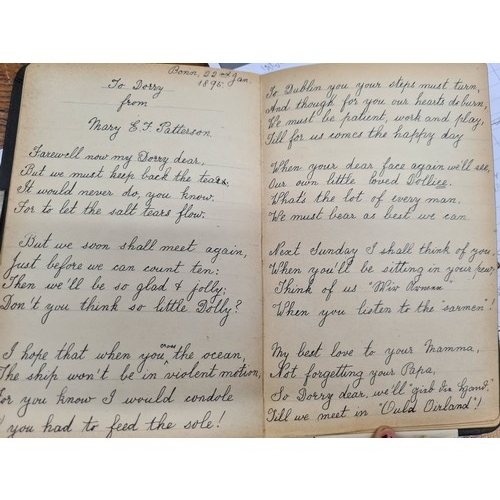 Bonn, 22nd Jan.
1895.
To Dorry
from
Mary E. F. Patterson
Farewell now my Dorry dear,
But we must keep back the tears.
It would never do, you know.
For to let the salt tears flow.
But we soon shall meet again,
Just before we can count ten:
Then we'll be so glad & jolly;
Don't you think so little Dolly?
I hope that when you cross the ocean,
The ship won't be in violent motion,
For you know I would condole
If you had to feed the sole!
To Dublin you your steps must turn,
And though for you our hearts do burn,
We must be patient, work and play,
Till for us comes the happy day
When your dear face again we'll see,
Our own little loved Dollice.
What's the lot of every man,
We must bear as best we can
Next Sunday I shall think of you,
When you'll be sitting in your pew.
Think of us
When you listen to the "sarmen"!
My best love to your Mamma,
Not forgetting your Papa,
So Dorry dear, we'll
Till we meet in "Ould Oirland"!